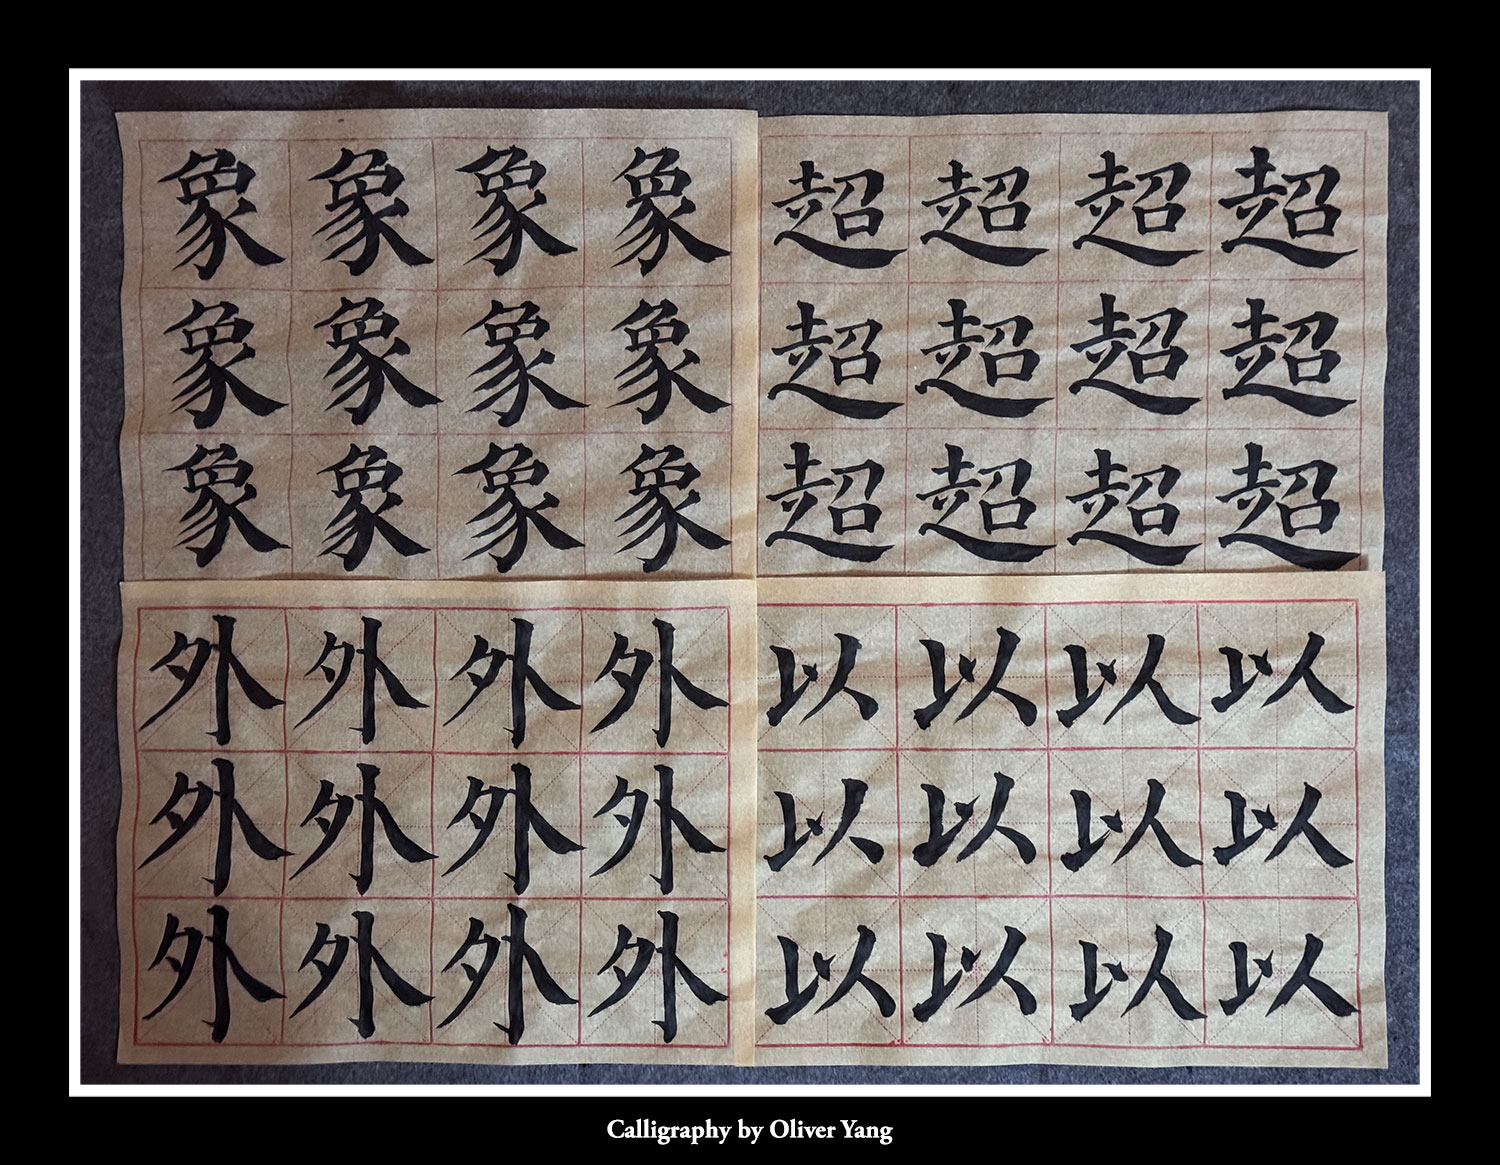 象象象象
象象象象
象象象象
超超超超
超超超超
超超超超
外外外外
外外外外
外外外外
以以以以
以以以以
以以以以
Calligraphy by Oliver Yang